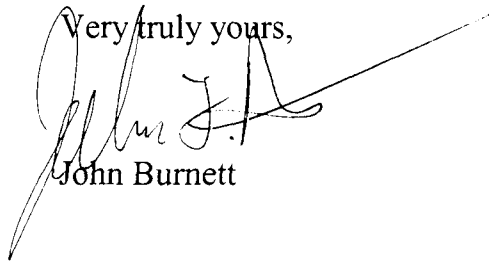 Very truly yours,
John
John Burnett